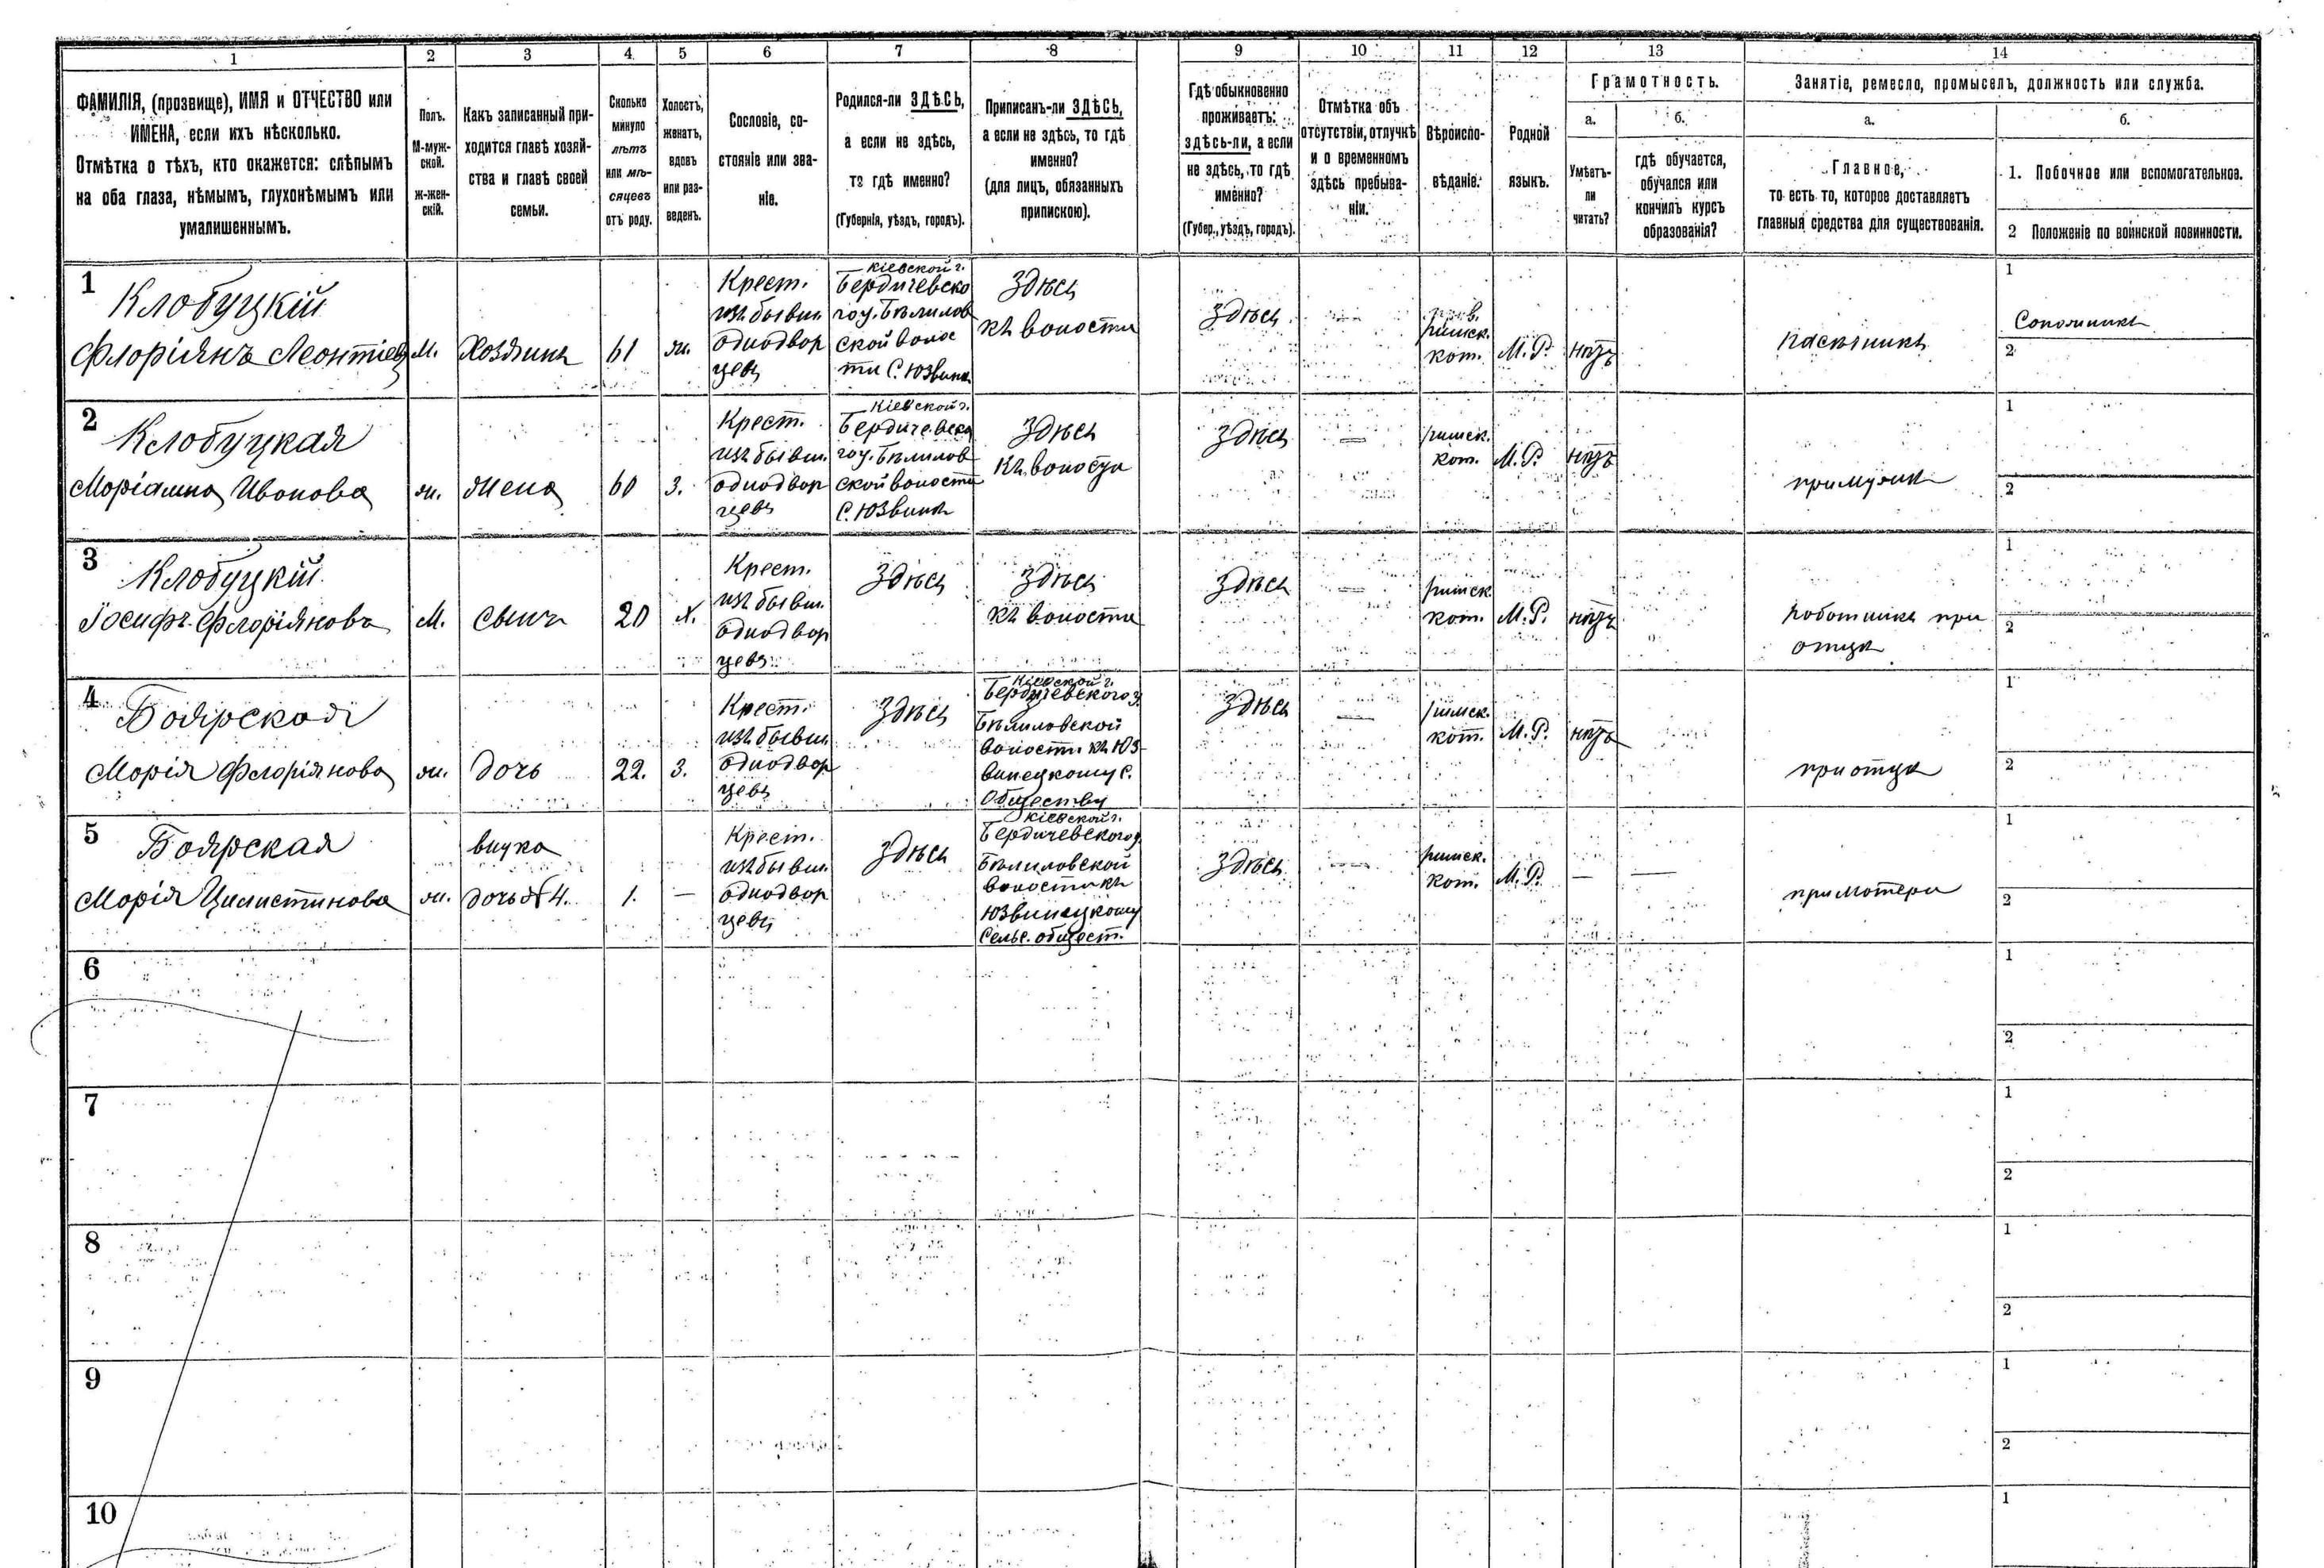 1 2 3 4 5 6 7 8 9 10 11 12 13 14
ФАМИЛІЯ, (прозвище), ИМЯ и ОТЧЕСТВО или
ИМЕНА, если ихъ нѣсколько.
Отмѣтка о тѣхъ, кто окажется: слѣпымъ
на оба глаза, нѣмымъ, глухонѣмымъ или
умалишеннымъ.
Полъ.
М-муж-
ской.
ж-жен-
скій.
Какъ записанный при-
ходится главѣ хозяй-
ства и главѣ своей
семьи.
Сколько
минуло
лѣтъ
или мѣ-
сяцевъ
отъ роду.
Холостъ,
женатъ,
вдовъ
или раз-
веденъ.
Сословіе, со-
стояніе или зва-
ніе.
Родился-ли ЗДѢСЬ,
а если не здѣсь,
то гдѣ именно?
(Губернія, уѣздъ, городъ).
Приписанъ-ли ЗДѢСЬ,
а если не здѣсь, то гдѣ
именно?
(для лицъ, обязанныхъ
припискою).
Гдѣ обыкновенно
проживаетъ:
здѣсь-ли, а если
не здѣсь, то гдѣ
именно?
(Губер., уѣздъ, городъ).
Отмѣтка объ
отсутствіи, отлучкѣ
и о временномъ
здѣсь пребыва-
ніи.
Вѣроиспо-
вѣданіе.
Родной
языкъ.
Грамотность.
а.
Умѣетъ-
ли
читать?
б.
гдѣ обучается,
обучался или
кончилъ курсъ
образованія?
Занятіе, ремесло, промыселъ, должность или служба.
а.
Главное,
то есть то, которое доставляетъ
главныя средства для существованія.
б.
1. Побочное или вспомогательное.
2 Положеніе по воинской повинности.
1
Клобуцкій
Флоріянъ Леонтіев
м.
Хозяинъ
61
ж.
Крест.
изъ бывш.
однодвор
цевъ
Кіевской г.
Бердичевско
го у. Бѣлилов
ской волос
ти С. Юзвинъ
Здѣсь
къ волости
Здѣсь
—
римск.
кат.
М.Р.
нѣтъ
пасѣчникъ
1
2
2
Клобуцкая
Маріанна Иванова
ж.
жена
60
З.
Крест.
изъ бывш.
однодвор
цевъ
Кіевской г.
Бердичевско
го у. Бѣлилов
ской волости
С. Юзвинъ
Здѣсь
къ волости
Здѣсь
—
римск.
кат.
М.Р.
нѣтъ
при мужѣ
1
2
3
Клобуцкій
Іосифъ Флоріянова
М.
сынъ
20
Х.
Крест.
изъ бывш.
однодвор
цевъ
Здѣсь
Здѣсь
къ волости
Здѣсь
—
римск
кат.
М.Р.
нѣтъ
работникъ при
отцѣ
1
2
4
Боярская
Марія Флоріянова
ж.
дочь
22.
З.
Крест.
изъ бывш.
однодвор
цевъ
Здѣсь
Кіевской г.
Бердичевского у.
Бѣлиловской
волост. къ Юз-
винецкому С.
Обществу
Здѣсь
—
римск.
кат.
М.Р.
нѣтъ
при отцѣ
1
2
5
Боярская
Марія Цилистинова
ж.
внука
дочь №4.
1.
—
Крест.
изъ бывш.
однодвор
цевъ
Здѣсь
Кіевской г.
Бердичевского у.
Бѣлиловской
волости къ
Юзвинецкому
Сельс. общест.
Здѣсь
—
римск.
кат.
М.Р.
—
—
при матери
1
2
6
1
2
7
1
2
8
1
2
9
1
2
10
1